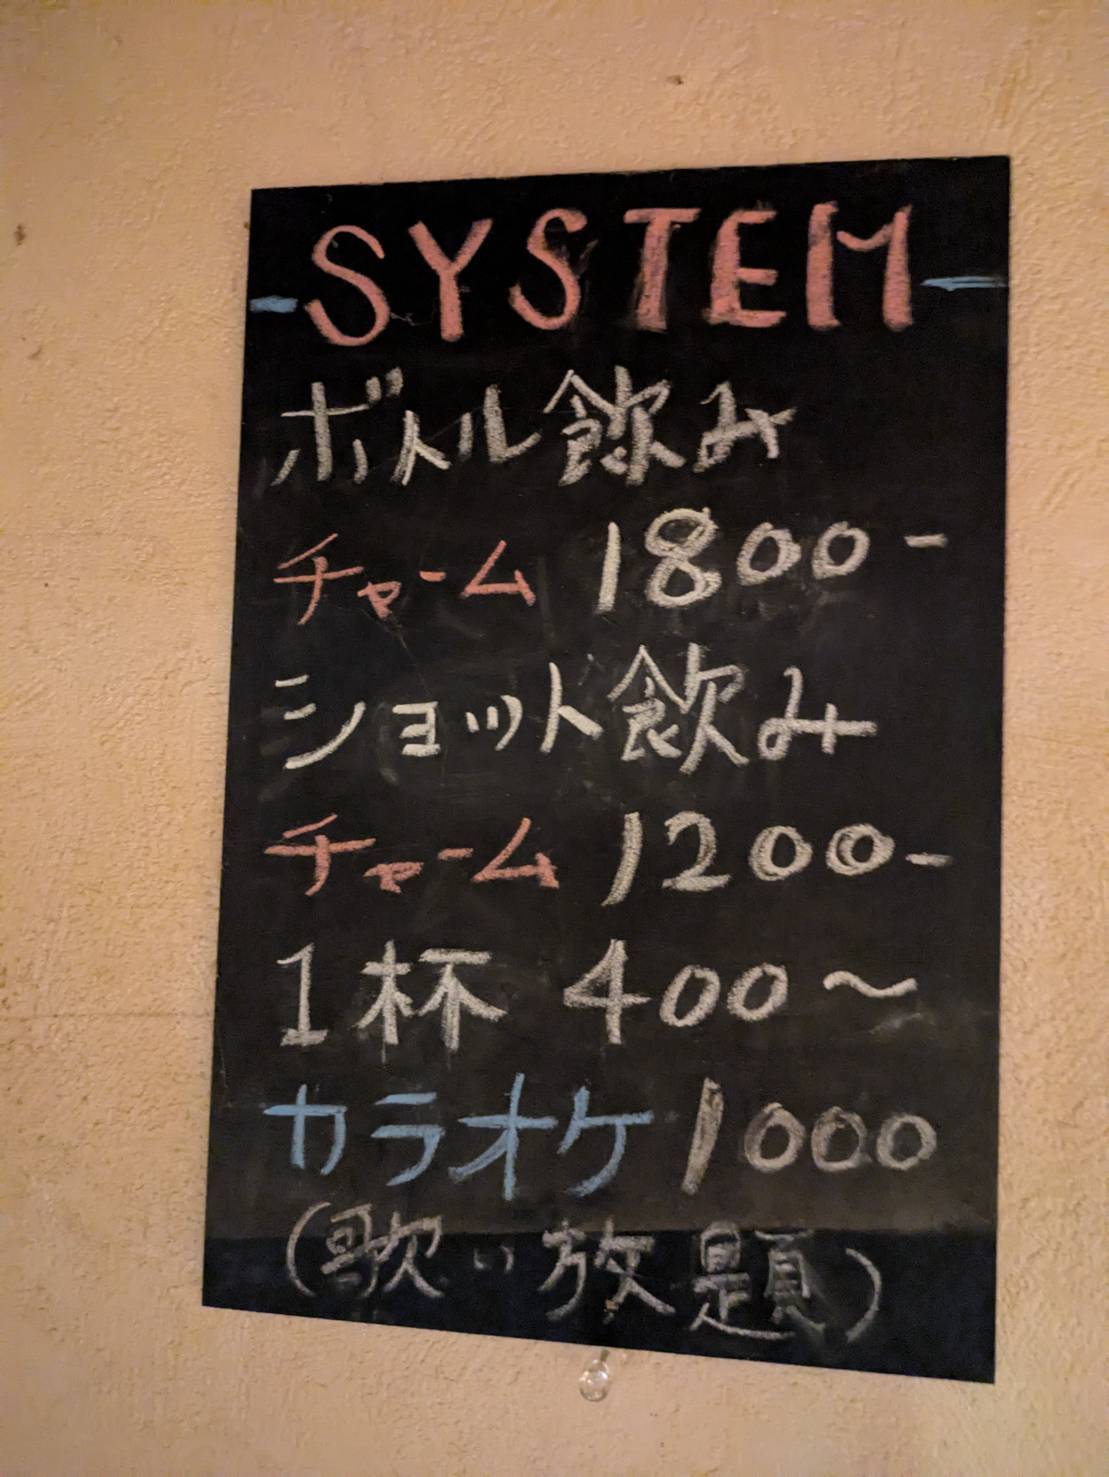 -SYSTEM-
ボトル飲み
チャーム 1800-
ショット飲み
チャーム 1200-
1杯 400～
カラオケ 1000
(歌い放題)